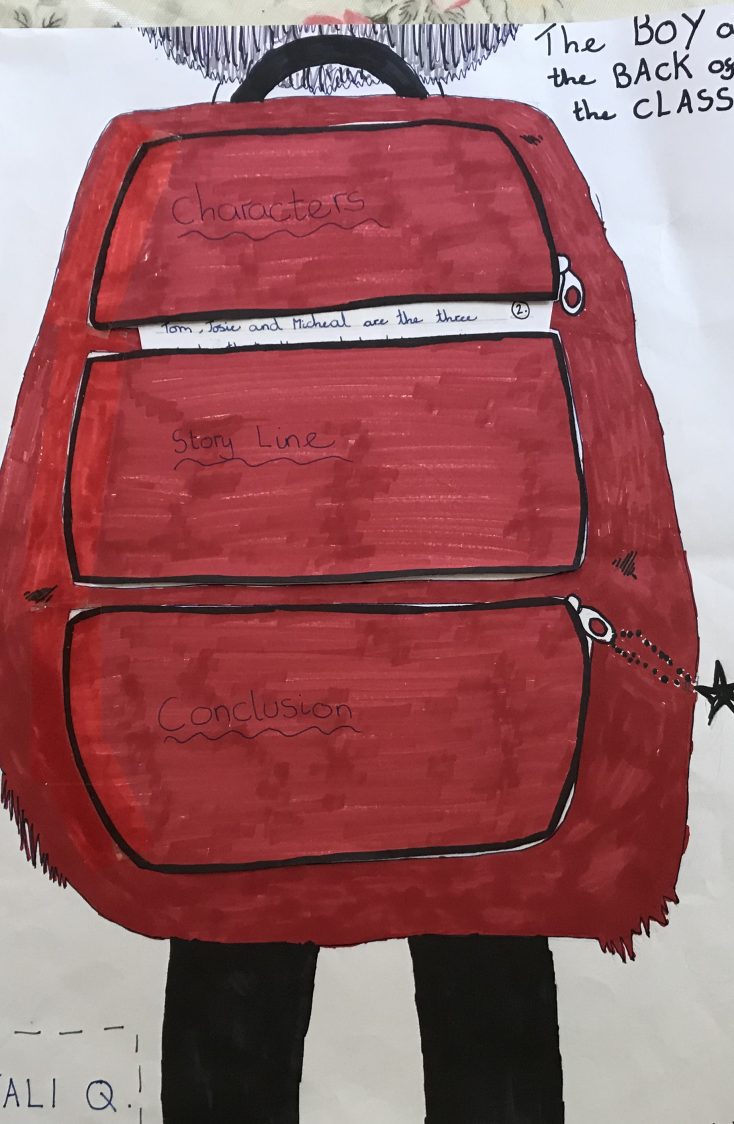 The BOY
the BACK of
the CLASS
Characters
Tom, Josie and Micheal are the three
2.
Story Line
Conclusion
ALI Q.